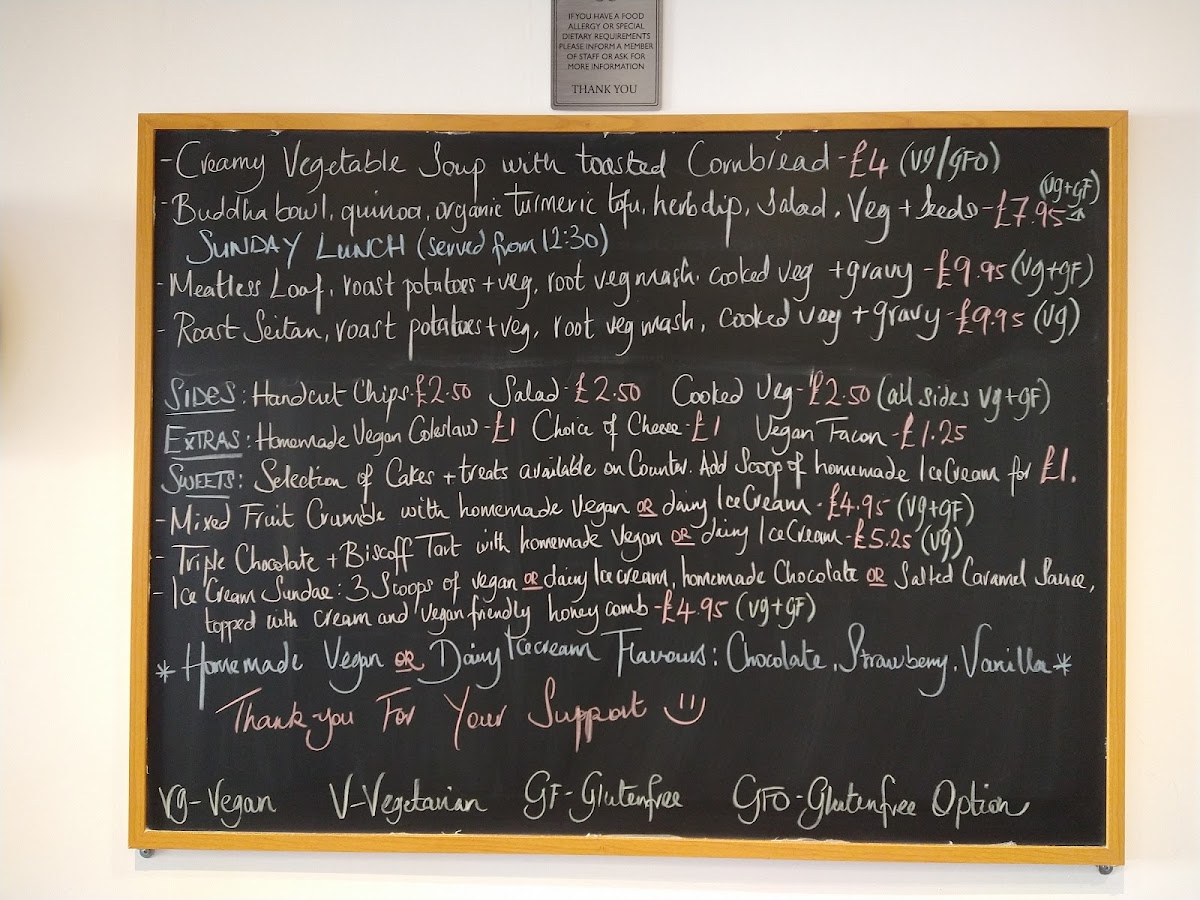 IF YOU HAVE A FOOD
ALLERGY OR SPECIAL
DIETARY REQUIREMENTS
PLEASE INFORM A MEMBER
OF STAFF OR ASK FOR
MORE INFORMATION
THANK YOU
- Creamy Vegetable Soup with toasted Cornbread - £4 (Vg/GFO)
- Buddha bowl, quinoa, organic turmeric tofu, herb dip, Salad, Veg + Seeds - £7.95 (Vg+GF)
SUNDAY LUNCH (served from 12:30)
- Meatless Loaf, roast potatoes + veg, root veg mash, cooked veg + gravy - £9.95 (Vg+GF)
- Roast Seitan, roast potatoes + veg, root veg mash, cooked veg + gravy - £9.95 (Vg)
SIDES: Handcut Chips - £2.50 Salad - £2.50 Cooked Veg - £2.50 (all sides Vg+GF)
EXTRAS: Homemade Vegan Coleslaw - £1 Choice of Cheese - £1 Vegan Facon - £1.25
SWEETS: Selection of Cakes + treats available on Counter. Add Scoop of homemade Ice Cream for £1.
- Mixed Fruit Crumble with homemade Vegan OR dairy Ice Cream - £4.95 (Vg+GF)
- Triple Chocolate + Biscoff Tart with homemade Vegan OR dairy Ice Cream - £5.25 (Vg)
- Ice Cream Sundae: 3 Scoops of vegan OR dairy Ice cream, homemade Chocolate OR Salted Caramel Sauce,
topped with cream and vegan friendly honey comb - £4.95 (Vg+GF)
* Homemade Vegan OR Dairy Icecream Flavours: Chocolate, Strawberry, Vanilla *
Thank-you For Your Support
Vg-Vegan V-Vegetarian GF-Glutenfree GFO-Glutenfree Option